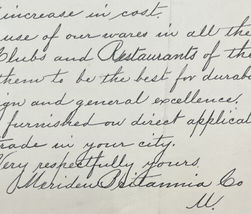 increase in cost.
use of our wares in all the
Clubs and Restaurants of the
them to be the best for durab
ign and general excellence.
furnished on direct applicat
rade in your city.
Very respectfully yours,
Meriden Britannia Co
M.